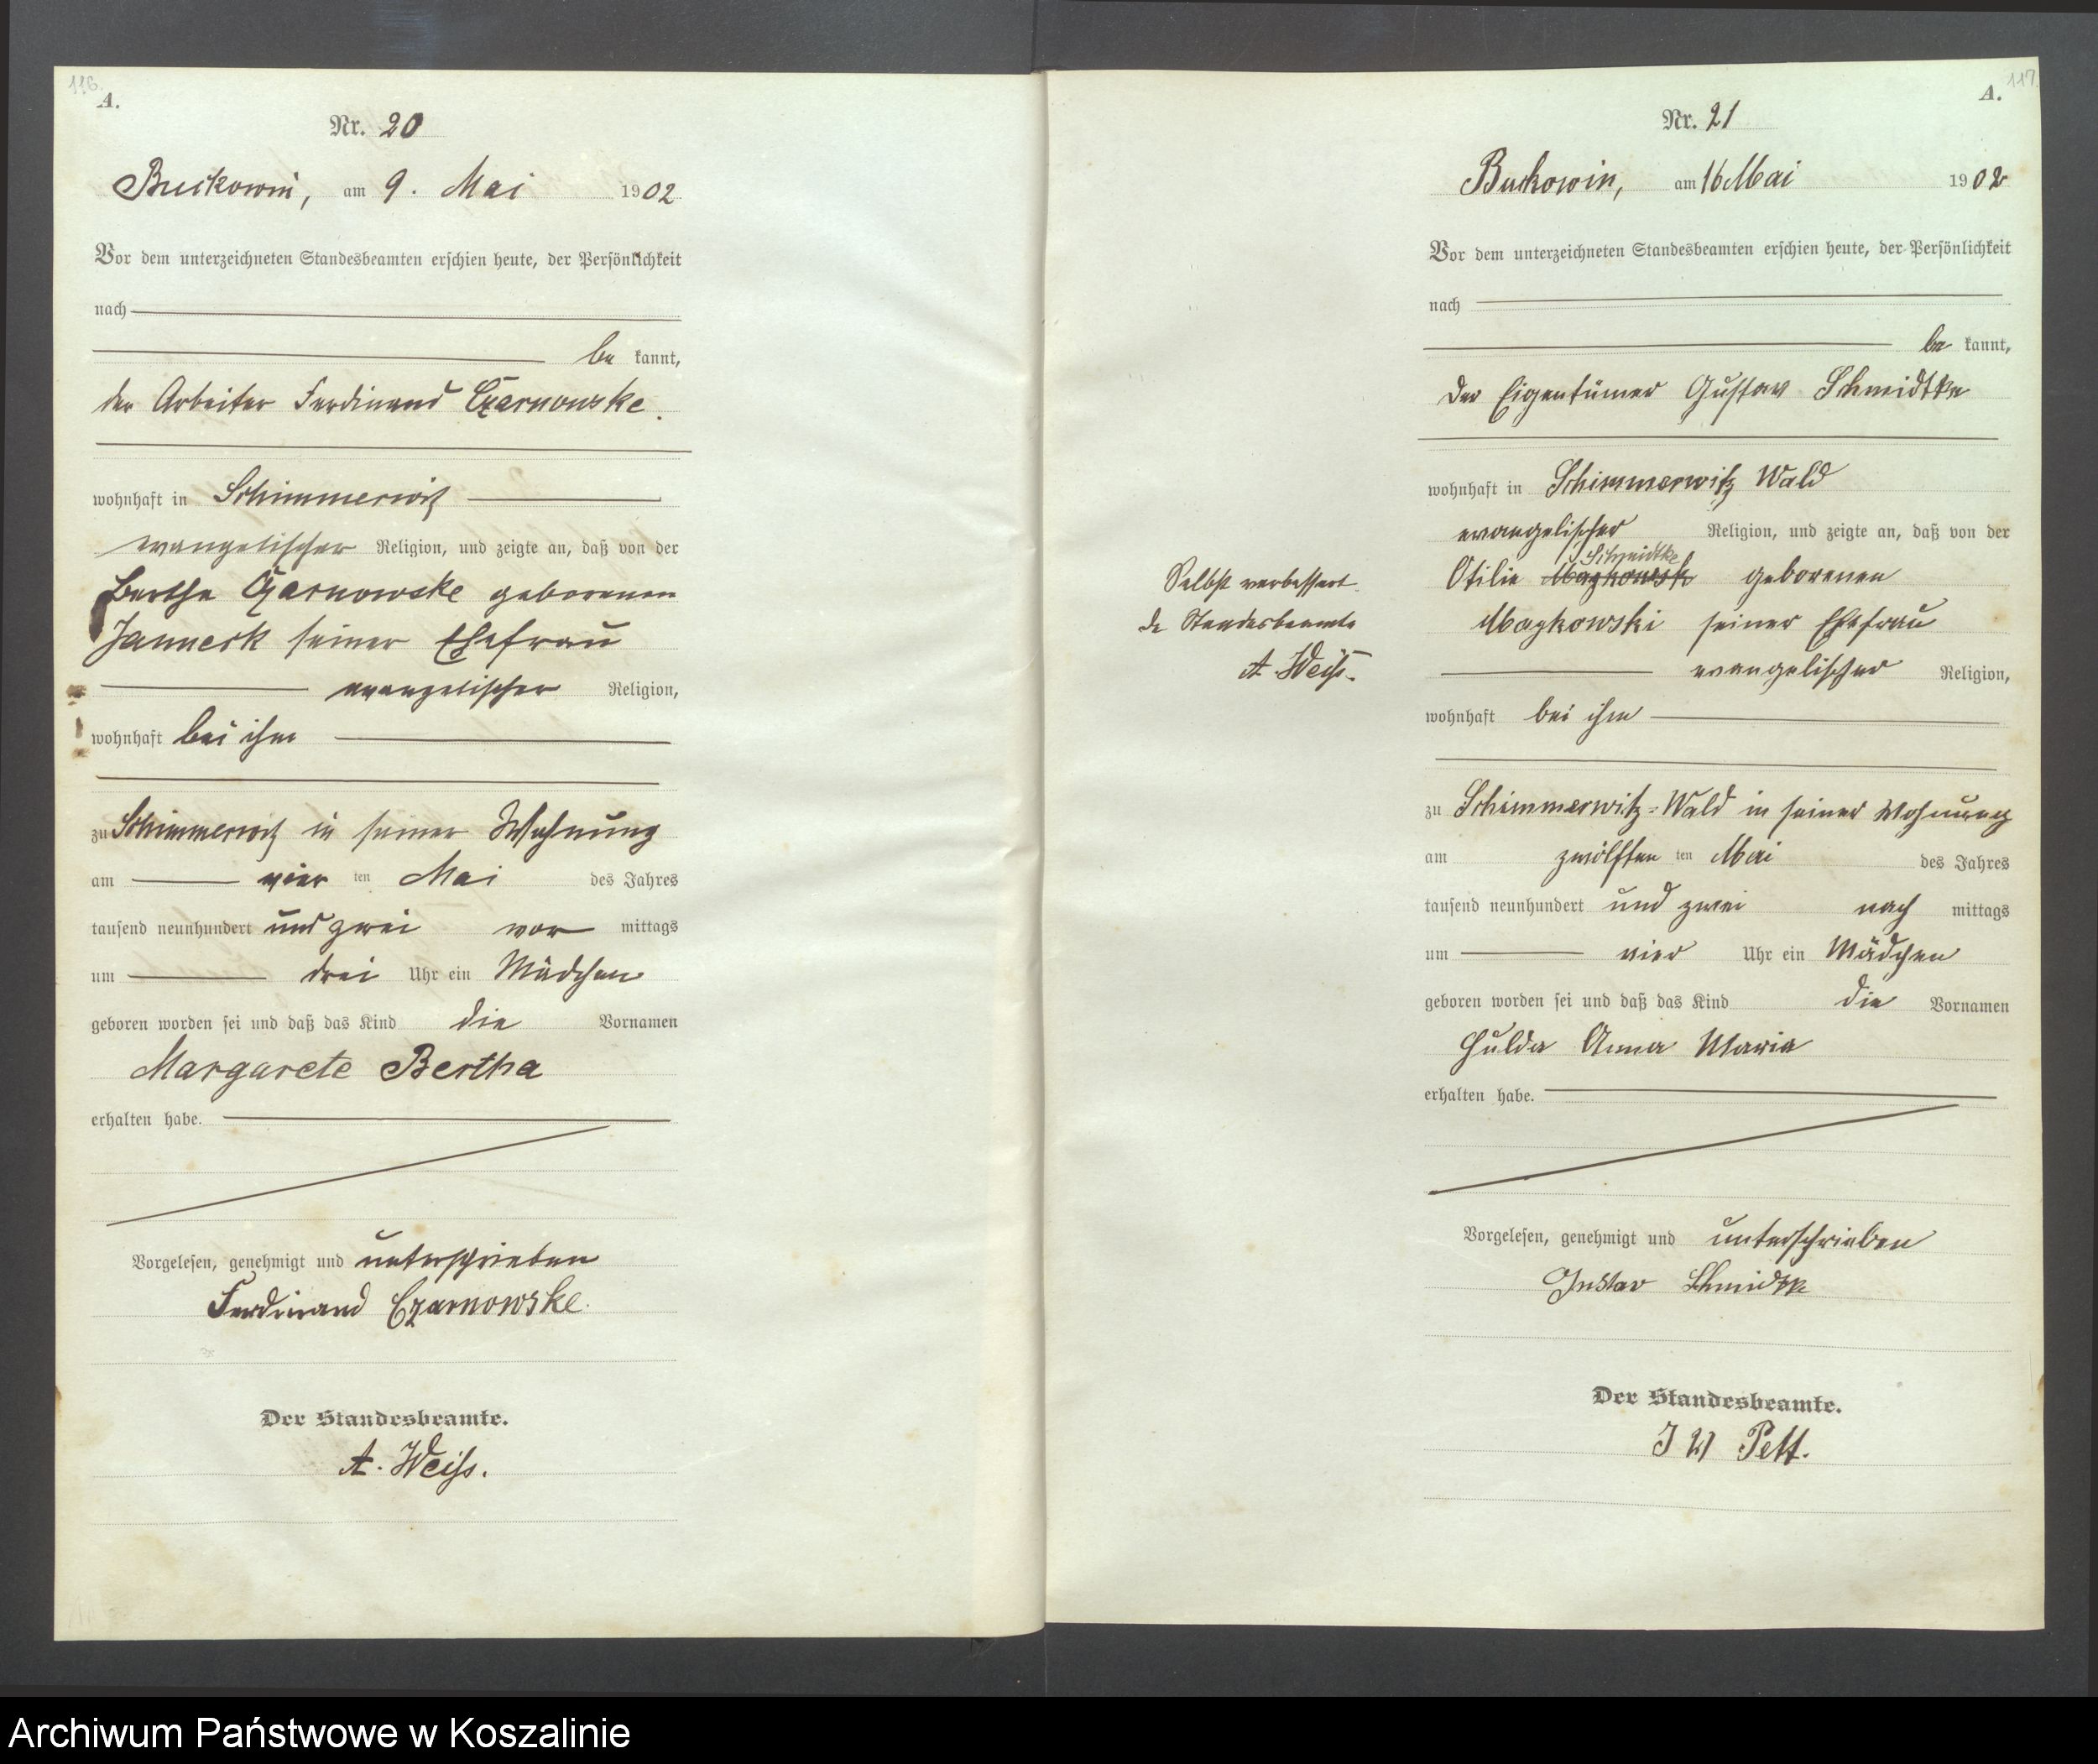 116.
A.
Nr. 20
Buckowin, am 9. Mai 1902
Vor dem unterzeichneten Standesbeamten erschien heute, der Persönlichkeit
nach
be kannt,
der Arbeiter Ferdinand Czarnowske.
wohnhaft in Schimmerwitz
evangelischer Religion, und zeigte an, daß von der
Bertha Czarnowske geborenen
Janneck seiner Ehefrau
evangelischer Religion,
wohnhaft bei ihm
zu Schimmerwitz in seiner Wohnung
am vier ten Mai des Jahres
tausend neunhundert und zwei vor mittags
um drei Uhr ein Mädchen
geboren worden sei und daß das Kind die Vornamen
Margarete Bertha
erhalten habe.
Vorgelesen, genehmigt und unterschrieben
Ferdinand Czarnowske.
Der Standesbeamte.
A. Weiss.
117.
A.
Nr. 21
Buckowin, am 16 Mai 1902
Vor dem unterzeichneten Standesbeamten erschien heute, der Persönlichkeit
nach
be kannt,
der Eigentümer Gustav Schmidtke
wohnhaft in Schimmerwitz Wald
evangelischer Religion, und zeigte an, daß von der
Schmidtke
Otilie geborenen
Magkowski seiner Ehefrau
evangelischer Religion,
wohnhaft bei ihm
zu Schimmerwitz-Wald in seiner Wohnung
am zwölften ten Mai des Jahres
tausend neunhundert und zwei nach mittags
um vier Uhr ein Mädchen
geboren worden sei und daß das Kind die Vornamen
Hulda Anna Maria
erhalten habe.
Vorgelesen, genehmigt und unterschrieben
Gustav Schmidtke
Der Standesbeamte.
Pett.
Selbst verbessert.
de Standesbeamte
A. Weiss.
Archiwum Państwowe w Koszalinie